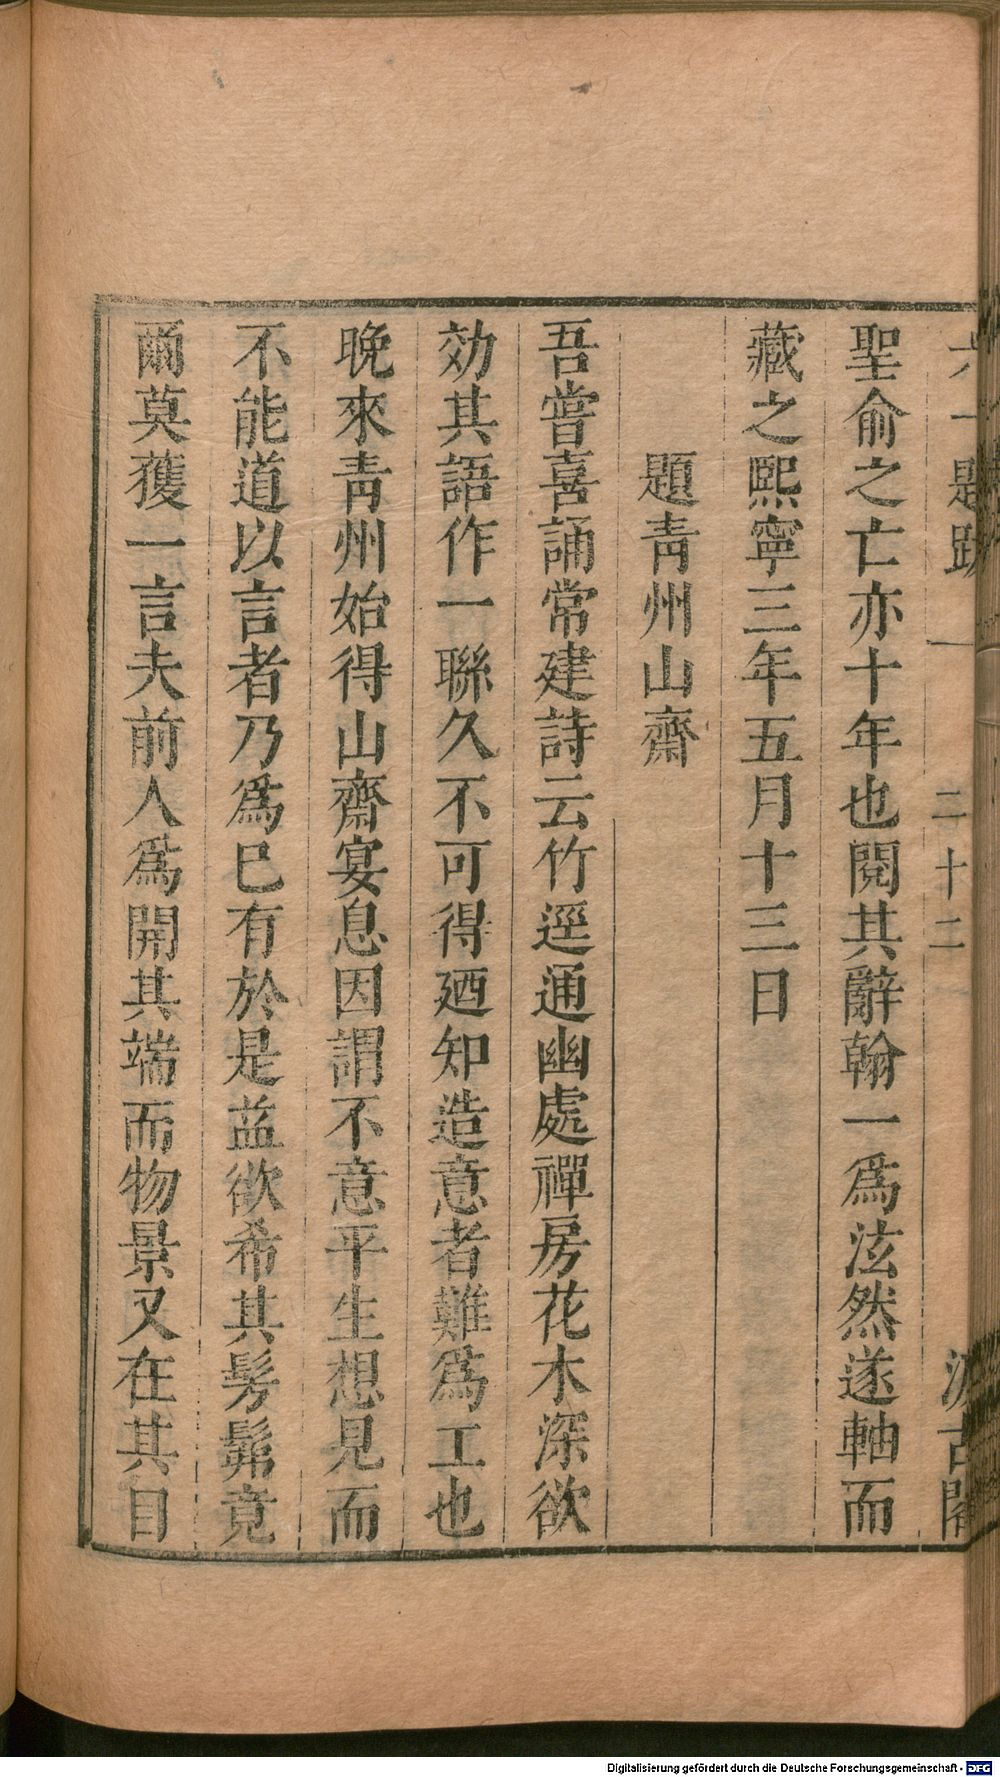 六一題跋 一 二十二 汲古閣
聖俞之亡亦十年也閱其辭翰一爲泫然遂軸而
藏之熙寧三年五月十三日
題靑州山齋
吾嘗喜誦常建詩云竹逕通幽處禪房花木深欲
効其語作一聯久不可得廼知造意者難爲工也
晚來靑州始得山齋宴息因謂不意平生想見而
不能道以言者乃爲巳有於是益欲希其髣髴竟
爾莫獲一言夫前人爲開其端而物景又在其目
Digitalisierung gefördert durch die Deutsche Forschungsgemeinschaft - DFG